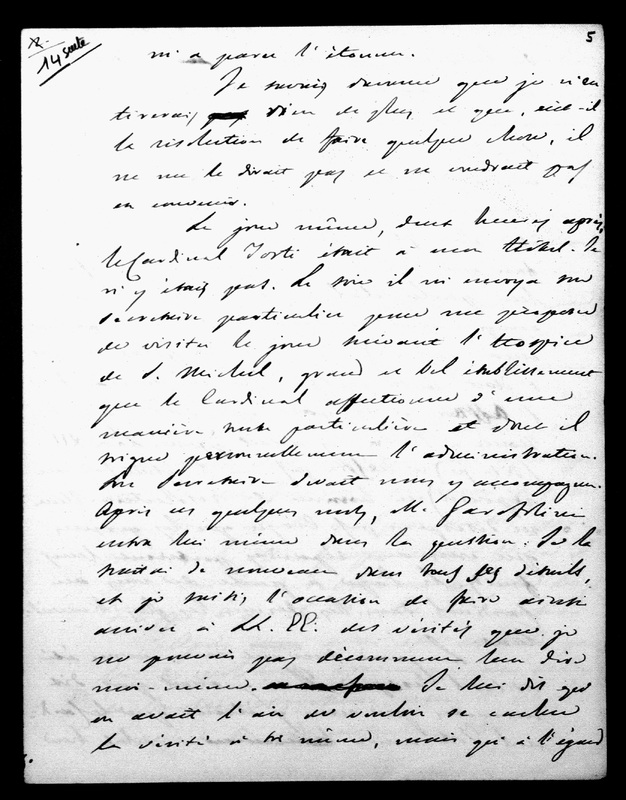 14 suite
5
m'a paru l'étonner.
Je savais d'avance que je n'en
tirerais rien de plus et que, eût-il
la résolution de faire quelque chose, il
ne me le dirait pas et ne voudrait pas
en convenir.
Le jour même, deux heures après,
le Cardinal Tosti était à mon Hôtel. Je
n'y étais pas. Le soir il m'envoya son
Secrétaire particulier pour me proposer
de visiter le jour suivant l'Hospice
de S. Michel, grand et bel établissement
que le Cardinal affectionne d'une
manière toute particulière et dont il
soigne personnellement l'administration.
Son Secrétaire devait nous y accompagner.
Après ces quelques mots, M.
entra lui même dans la question. Je la
traitai de nouveau dans tous ses détails,
et je saisis l'occasion de faire ainsi
arriver à LL. EE. des vérités que je
ne pouvais pas décemment leur dire
moi-même. Je lui dis que
on avait l'air de vouloir se cacher
la vérité à soi même, mais qu'à l'égard